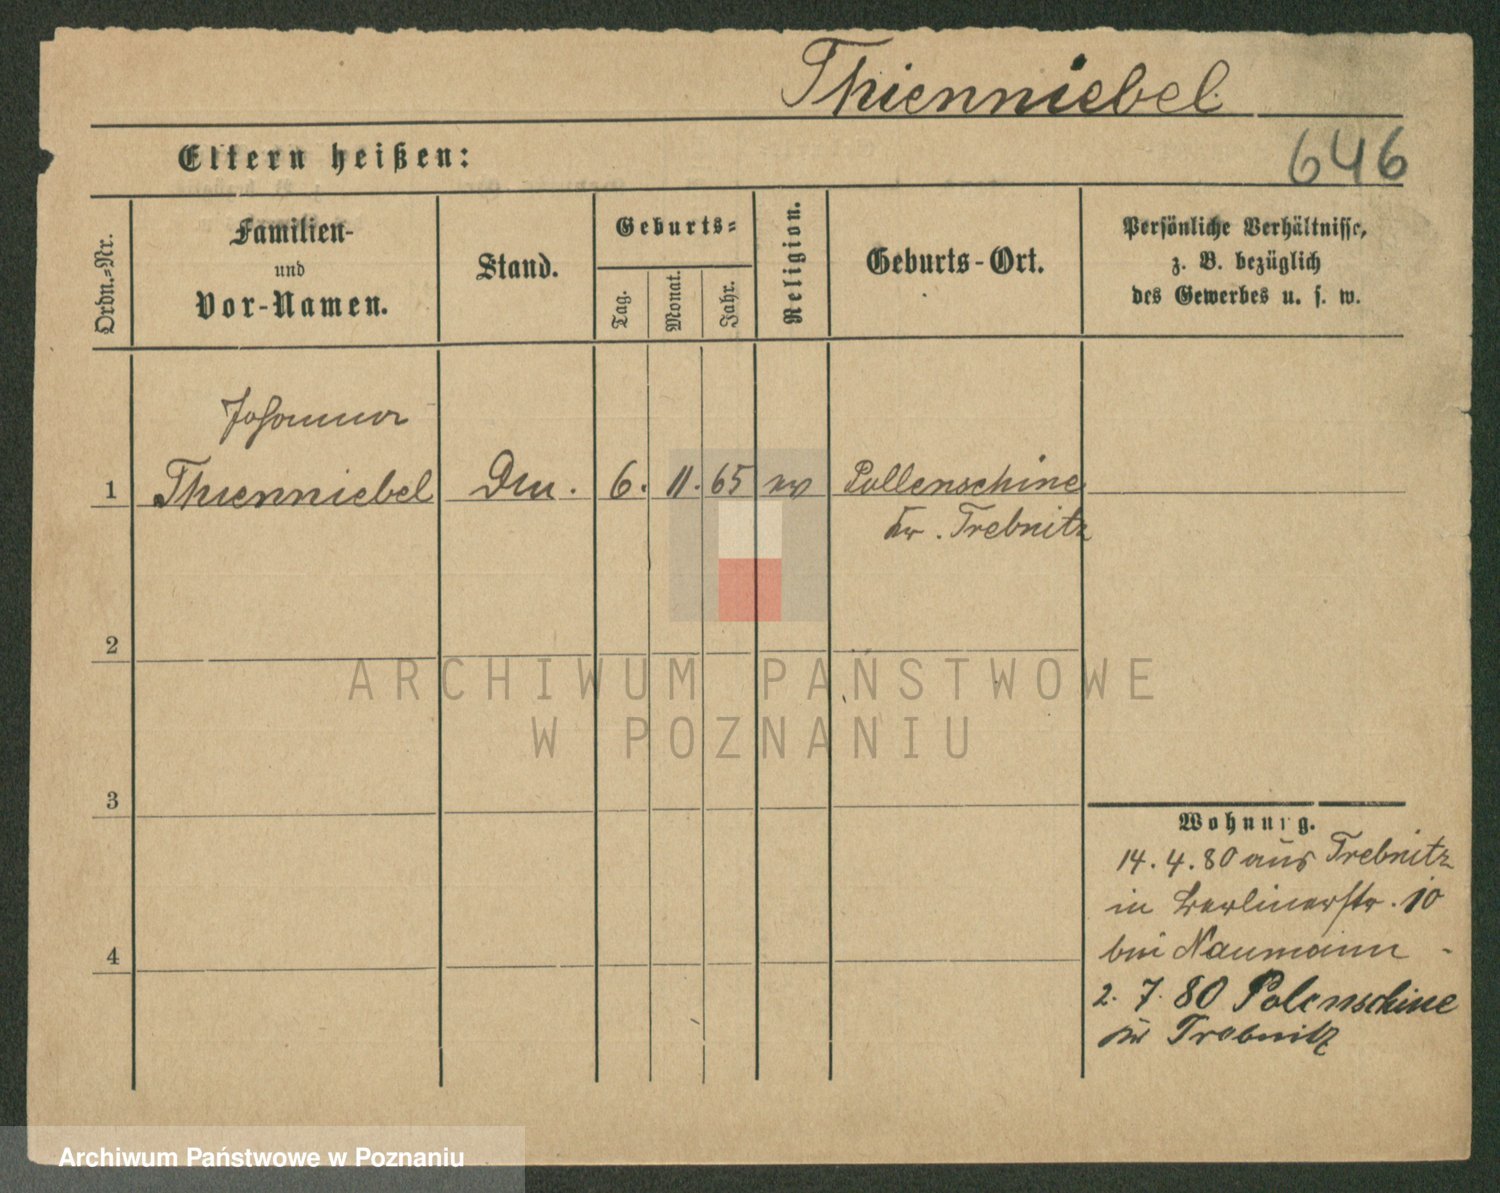 Thienniebel
Eltern heißen:
646
Ordn.=Nr.
Familien-
und
Vor-Namen.
Stand.
Geburts=
Tag.
Monat.
Jahr.
Religion.
Geburts-Ort.
Persönliche Verhältnisse,
z. B. bezüglich
des Gewerbes u. s. w.
Johanna
1 Thienniebel 6. 11. 65 ev Pollenschine
Kr. Trebnitz
2
ARCHIWUM PAŃSTWOWE
W POZNANIU
3
Wohnung.
14. 4. 80 aus Trebnitz
in Berlinerstr. 10
4
bei Naumann
2. 7. 80 Polenschine
Kr Trebnitz
Archiwum Państwowe w Poznaniu